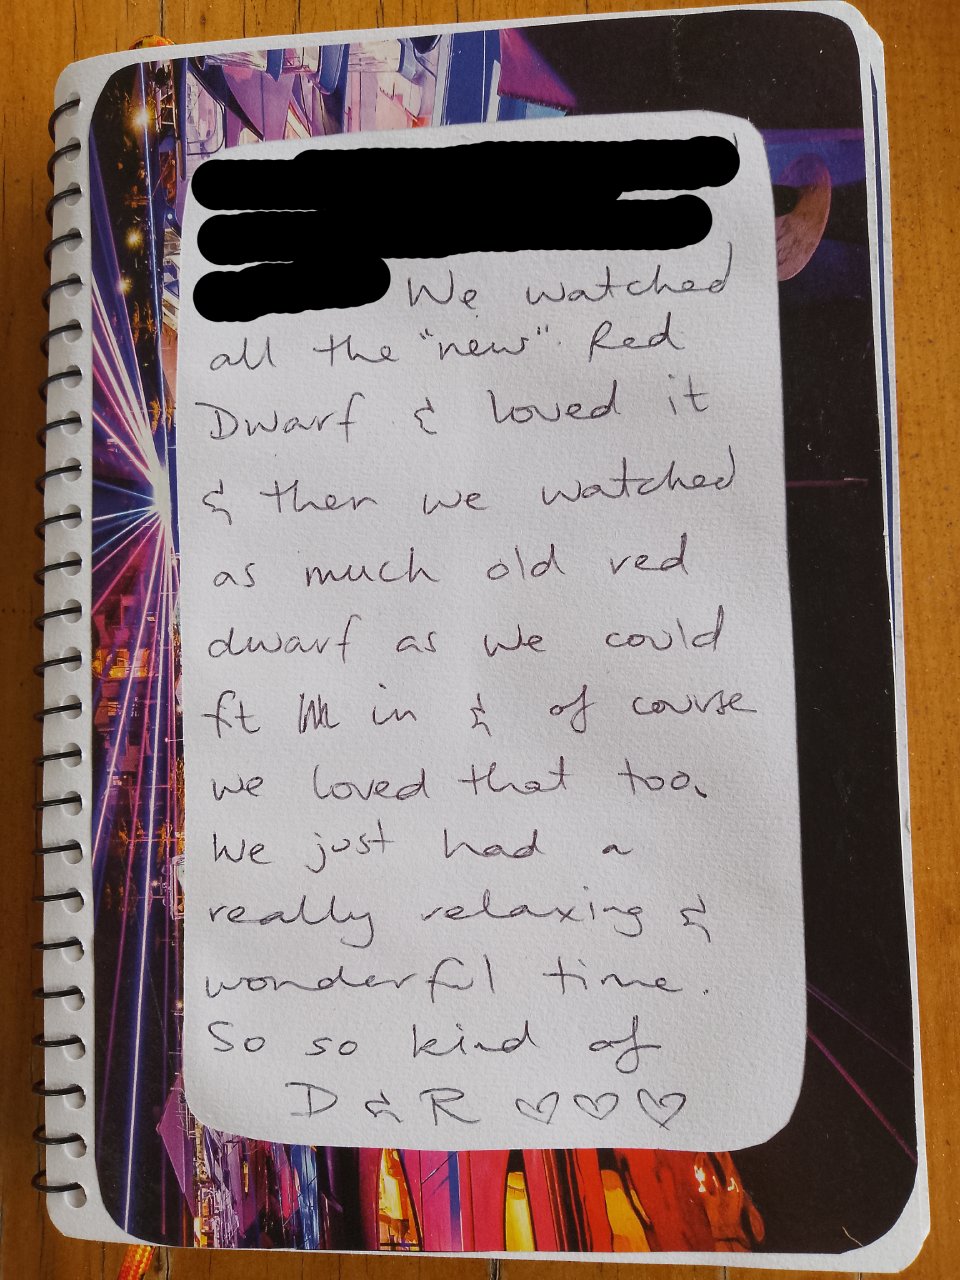 We watched
all the "new" Red
Dwarf & loved it
& then we watched
as much old red
dwarf as we could
fit in & of course
we loved that too.
We just had a
really relaxing &
wonderful time.
So so kind of
D & R ♡♡♡